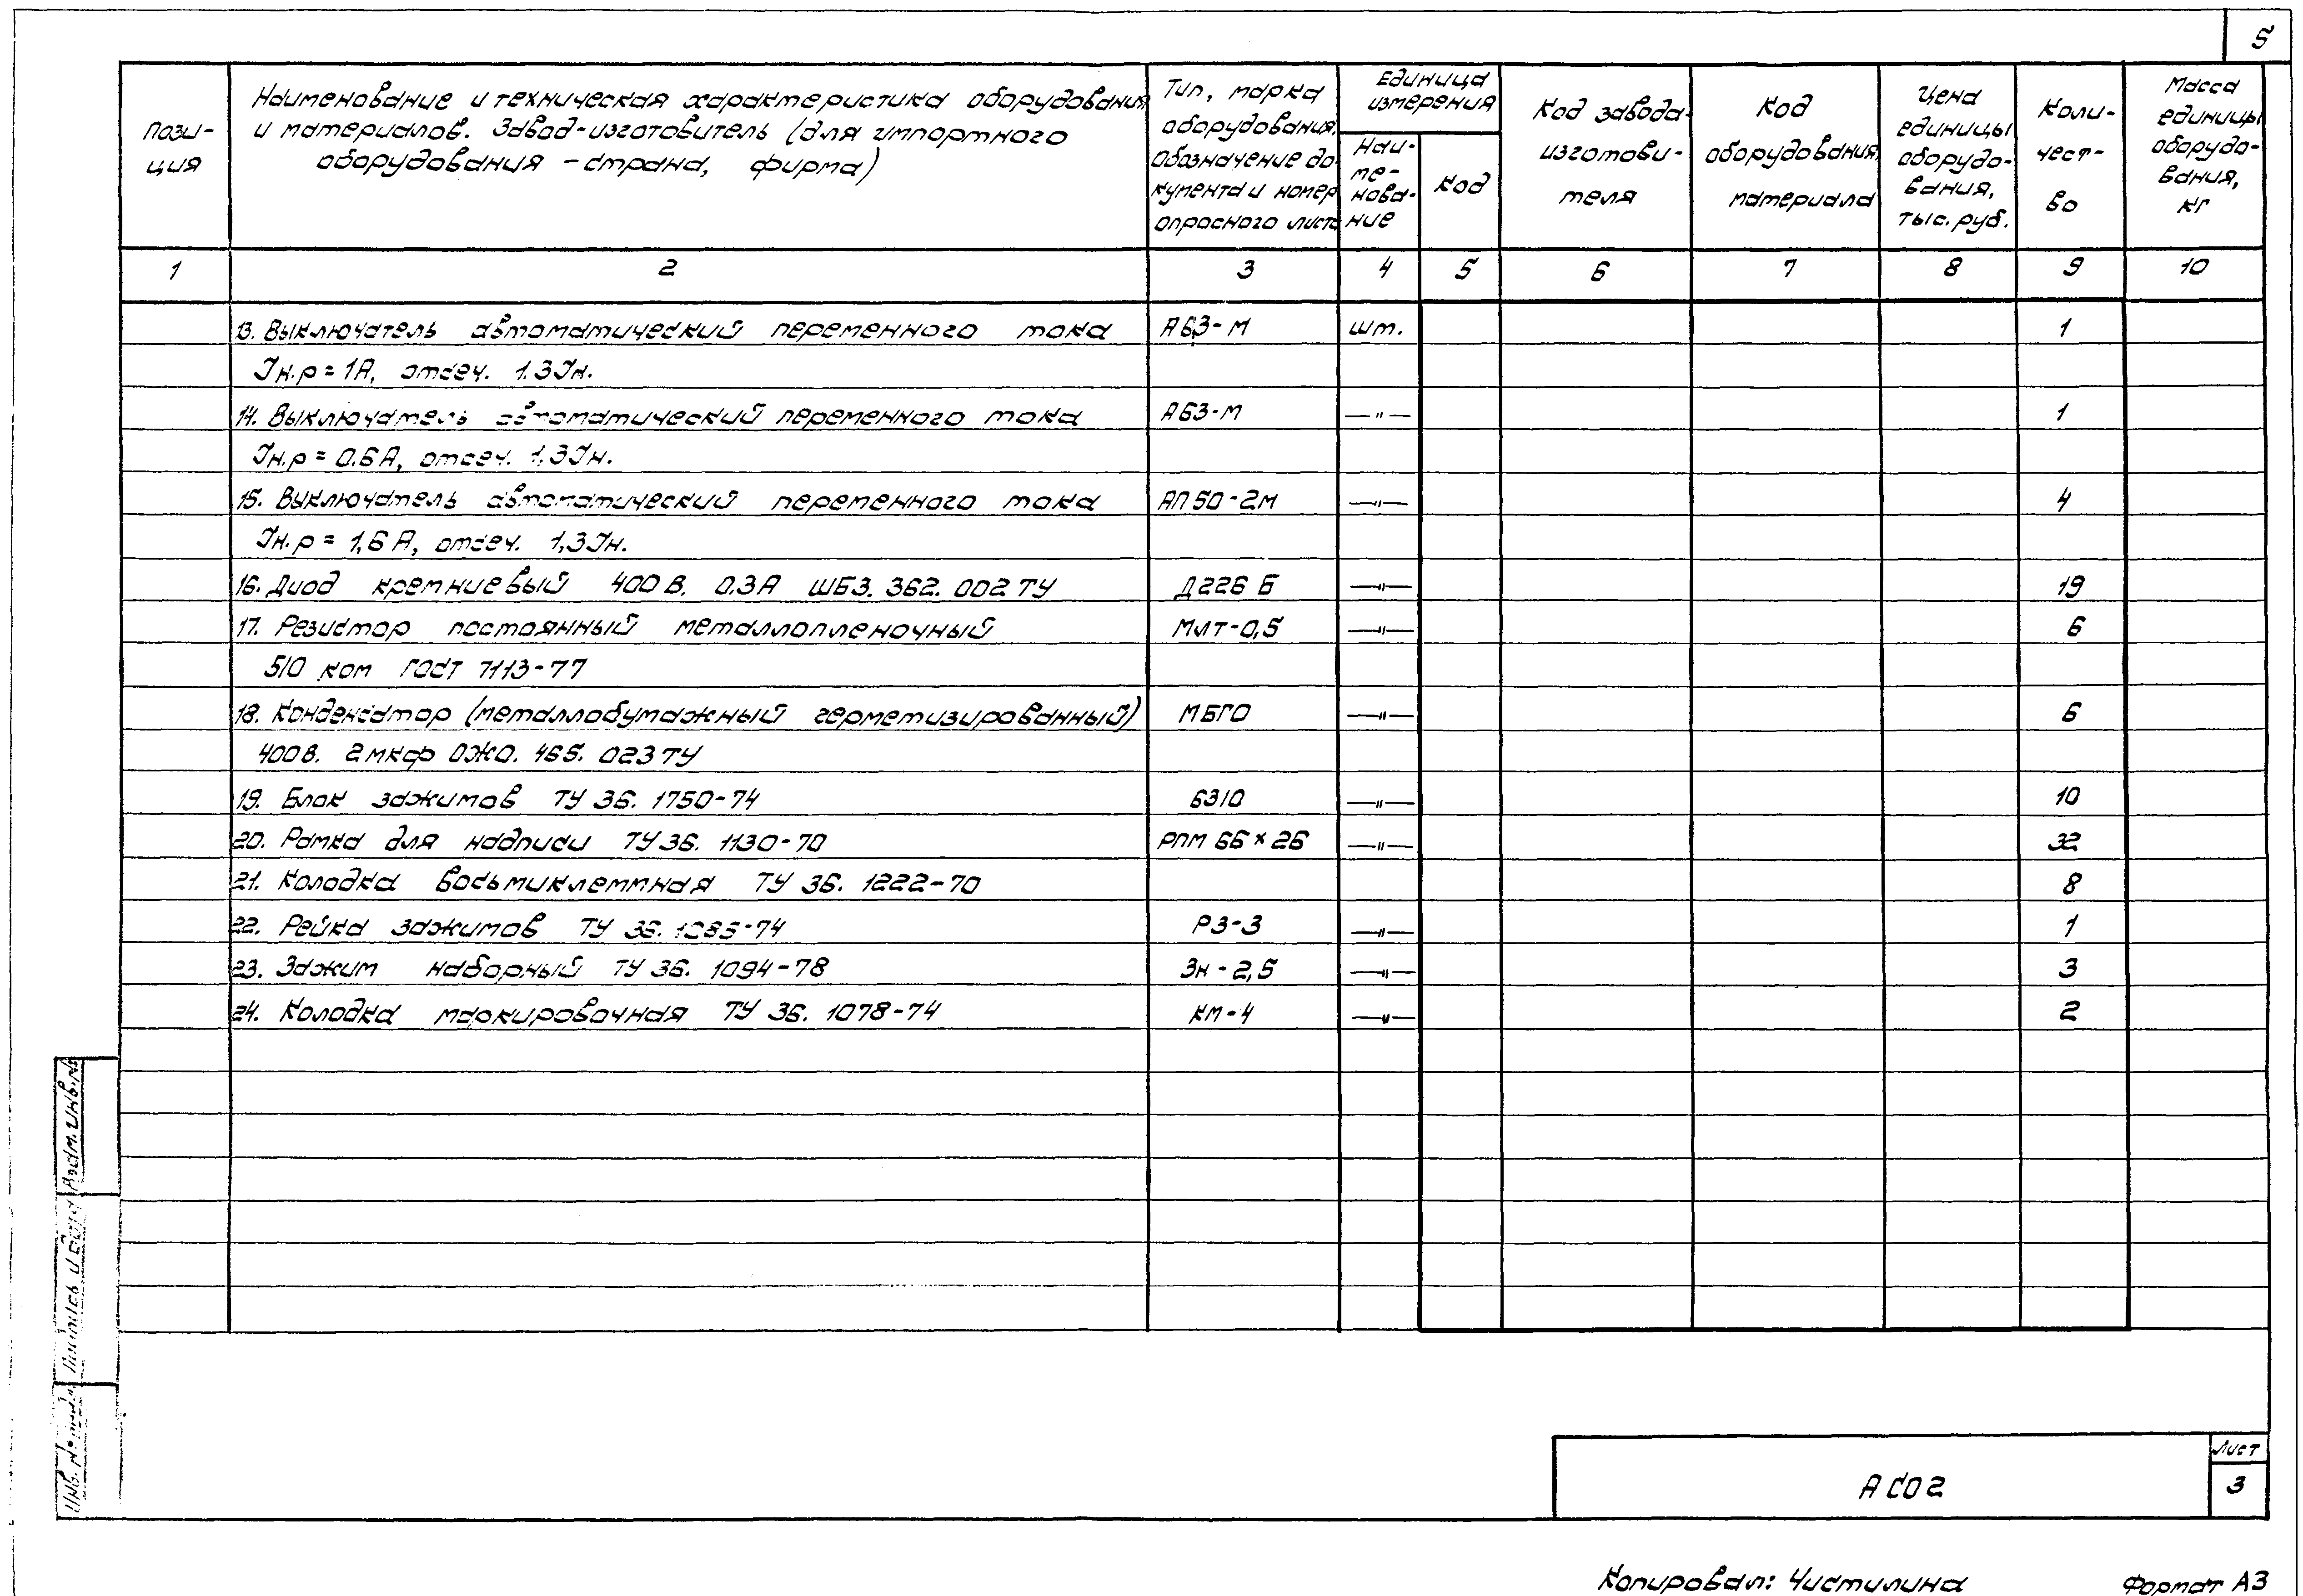 5
пози-
ция
Наименование и техническая характеристика оборудования
и материалов. Завод-изготовитель (для импортного
оборудования - страна, фирма)
Тип, марка
оборудования.
Обозначение до-
кумента и номер
опросного листа
Единица
измерения
Наи-
ме-
нова-
ние
Код
Код завода-
изготови-
теля
Код
оборудования,
материала
Цена
единицы
оборудо-
вания,
тыс. руб.
Коли-
чест-
во
Масса
единицы
оборудо-
вания,
кг
1 2 3 4 5 6 7 8 9 10
13. Выключатель автоматический переменного тока А63-М шт. 1
Iн.р = 1А, отсеч. 1.3Iн.
14. Выключатель автоматический переменного тока А63-М —"— 1
Iн.р = 0.6А, отсеч. 1,3Iн.
15. Выключатель автоматический переменного тока АП50-2М —"— 4
Iн.р = 1,6А, отсеч. 1,3Iн.
16. Диод кремниевый 400 В. 0.3А ШБ3. 362. 002 ТУ Д226Б —"— 19
17. Резистор постоянный металлопленочный МЛТ-0,5 —"— 6
510 ком ГОСТ 7113-77
18. Конденсатор (металлобумажный герметизированный) МБГО —"— 6
400в. 2мкф ОЖО. 465. 023 ТУ
19. Блок зажимов ТУ 36. 1750-74 БЗ10 —"— 10
20. Рамка для надписи ТУ 36. 1130-70 РПМ 66×26 —"— 32
21. Колодка восьмиклеммная ТУ 36. 1222-70 8
22. Рейка зажимов ТУ 36. 1085-74 РЗ-3 —"— 1
23. Зажим наборный ТУ 36. 1094-78 Зн-2,5 —"— 3
24. Колодка маркировочная ТУ 36. 1078-74 КМ-4 —"— 2
Взам. инв. №
Подпись и дата
Инв. № подл.
АСО2
Лист
3
Копировал: Чистилина Формат А3